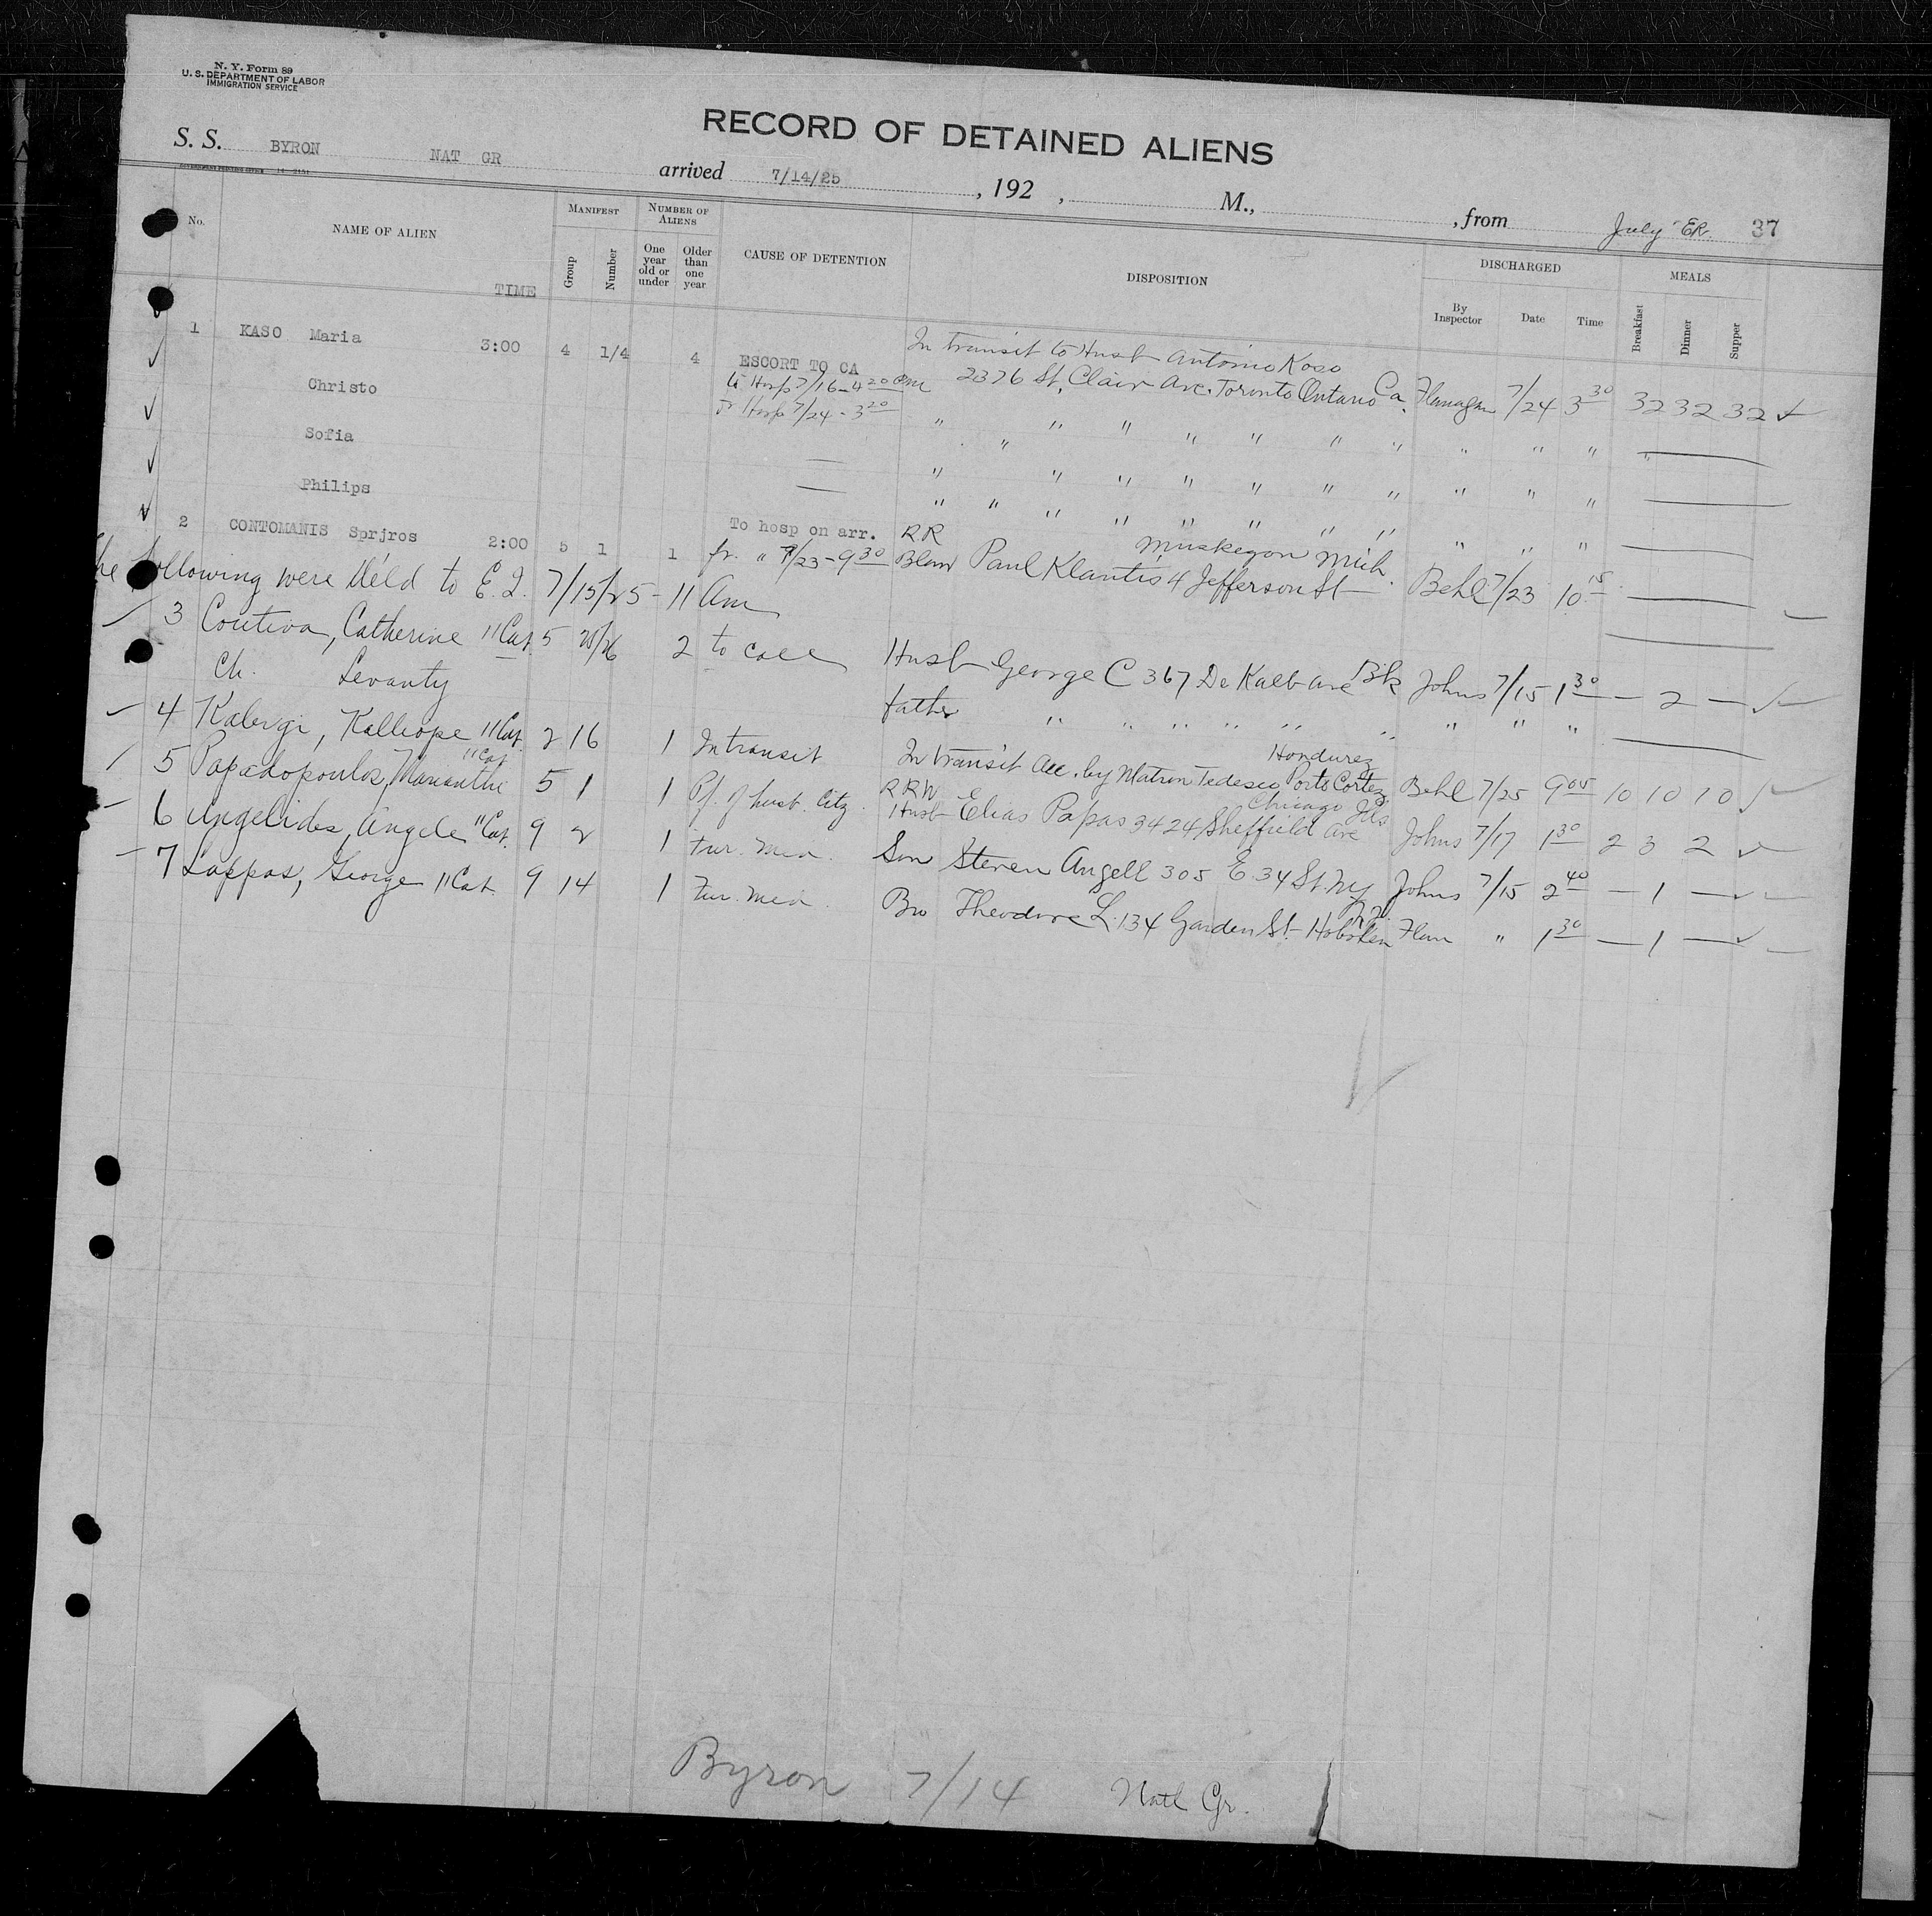 N. Y. Form 89
U. S. DEPARTMENT OF LABOR
IMMIGRATION SERVICE
RECORD OF DETAINED ALIENS
S. S. BYRON NAT GR arrived 7/14/25 , 192 , M., , from July ER. 37
No. NAME OF ALIEN TIME MANIFEST Group Number NUMBER OF ALIENS One year old or under Older than one year CAUSE OF DETENTION DISPOSITION DISCHARGED By Inspector Date Time MEALS Breakfast Dinner Supper
1 KASO Maria 3:00 4 1/4 4 ESCORT TO CA In transit to Husb Antonio Koso
to Hosp 7/16-4 20 pm 2376 St. Clair Ave. Toronto Ontario Ca. Flanagan 7/24 3 30 32 32 32
Christo fr Hosp 7/24-3 20 " " " " " " " " " "
Sofia — " " " " " " " " " "
Philips — " " " " " " " " " " "
2 CONTOMANIS Sprjros 2:00 5 1 1 To hosp on arr. RR Muskegon Mich.
fr. " 7/23-9 30 Blaw Paul Klantis 4 Jefferson St Behl 7/23 10 15
he following were Held to E. I. 7/15/25 - 11 Am
3 Coutiva, Catherine "Cat 5 25/26 2 to call Husb George C 367 De Kalb Ave Bk Johns 7/15 1 30 — 2 —
Ch. Levanty father " " " " " " " " "
4 Kalergi, Kalliope "Cat. 2 16 1 In transit In transit Acc. by Matron Tedesco Porto Cortez Hondurez Behl 7/25 9 05 10 10 10
5 Papadopoulos, Marianthe "Cat 5 1 1 Pf. of husb. Citz. RRW Husb Elias Papas 3424 Sheffield Ave Chicago Ills Johns 7/17 1 30 2 3 2
6 Angelides, Angele "Cat. 9 2 1 Fur. Med. Son Steven Angell 305 E. 34 St. NY Johns 7/15 2 40 — 1 —
7 Lappas, George "Cat. 9 14 1 Fur. Med. Bro Theodore L. 134 Garden St. Hoboken NJ Flan " 1 30 — 1 —
Byron 7/14 Natl Gr.